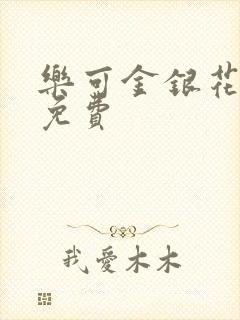 樂可金銀花
免費
我愛木木